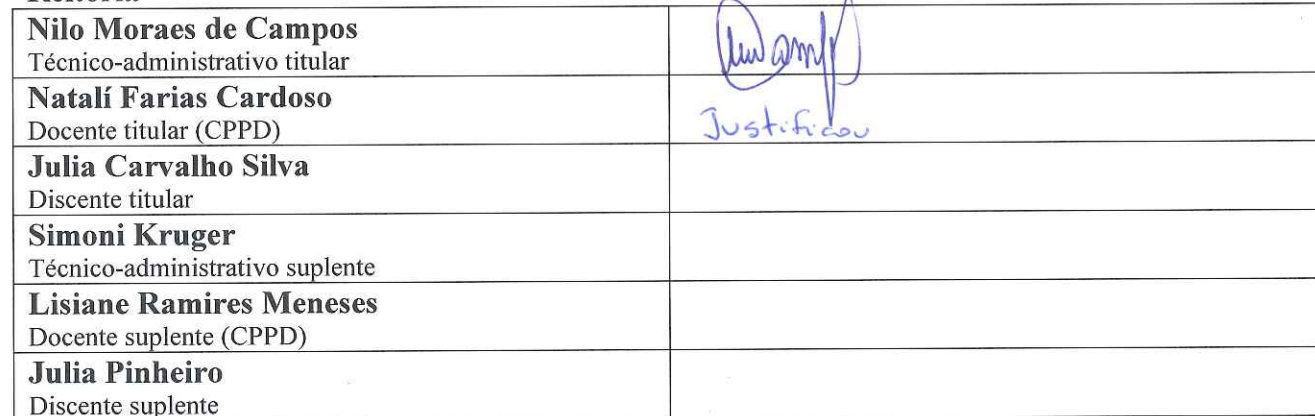 Reitoria
Nilo Moraes de Campos
Técnico-administrativo titular
Natalí Farias Cardoso
Docente titular (CPPD)
Justificou
Julia Carvalho Silva
Discente titular
Simoni Kruger
Técnico-administrativo suplente
Lisiane Ramires Meneses
Docente suplente (CPPD)
Julia Pinheiro
Discente suplente